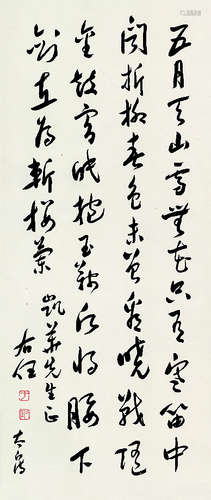 五月天山雪無花只有寒笛中
聞折柳春色未曾看曉戰隨
金鼓宵眠抱玉鞍願將腰下
劍直為斬樓蘭
凱華先生正
右任